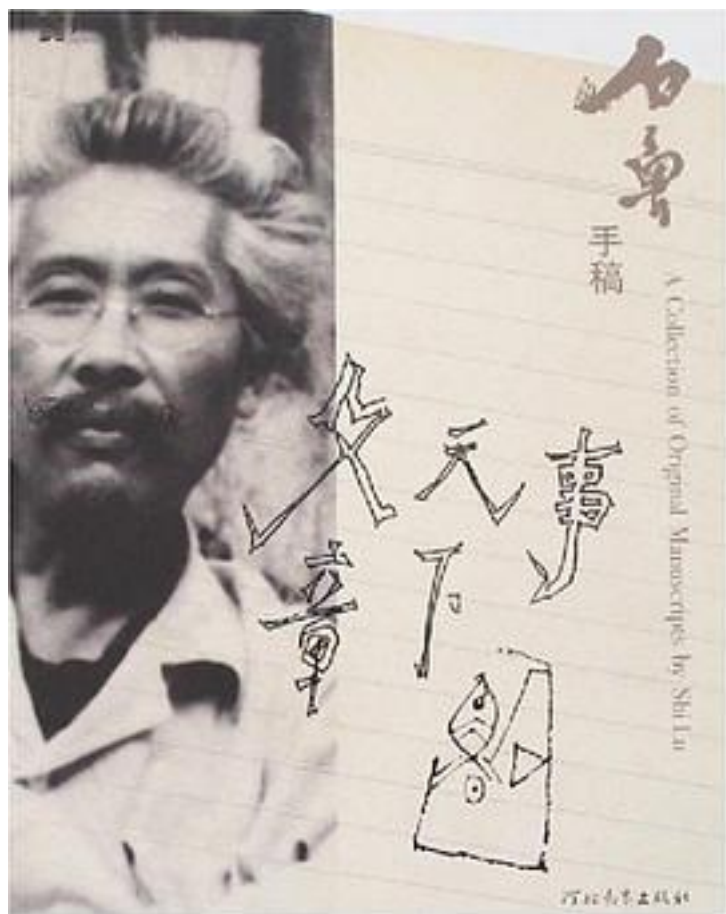 石魯
手稿
A Collection of Original Manuscripts by Shi Lu
文章
天下
事
河北教育出版社